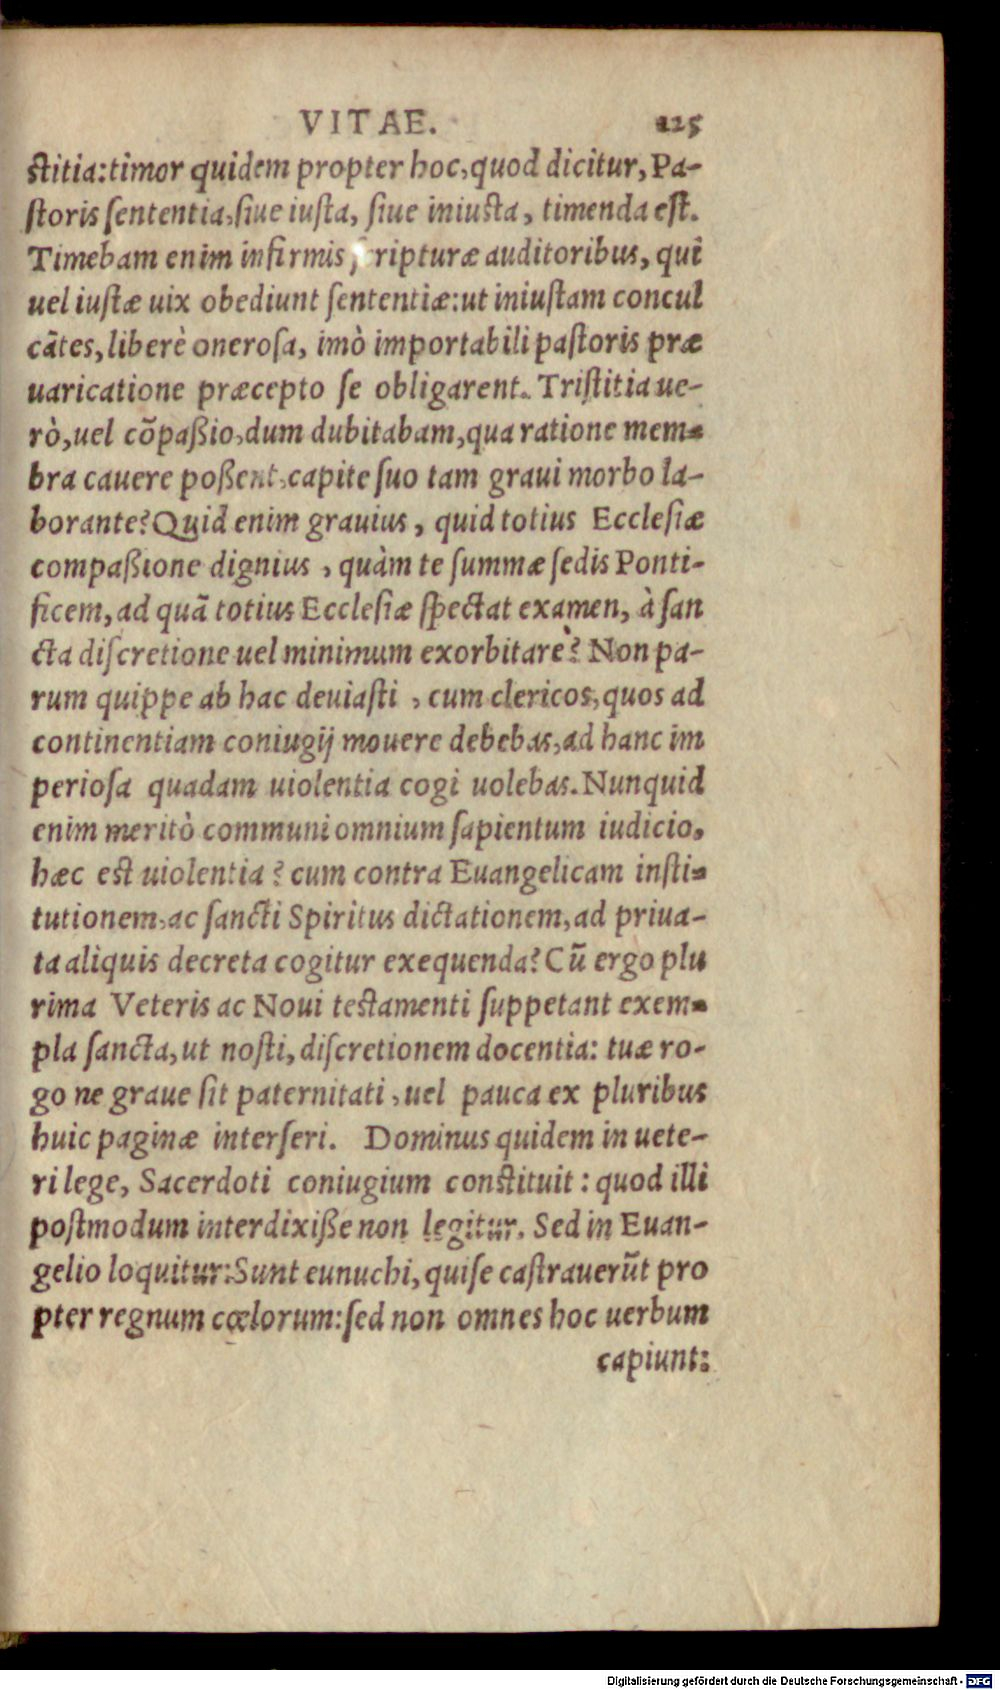 VITAE. 125
stitia: timor quidem propter hoc, quod dicitur, Pa-
storis sententia, siue iusta, siue iniusta, timenda est.
Timebam enim infirmis scripturæ auditoribus, qui
uel iustæ uix obediunt sententiæ: ut iniustam concul
cãtes, liberè onerosa, imò importabili pastoris præ
uaricatione præcepto se obligarent. Tristitia ue-
rò, uel cõpaßio, dum dubitabam, qua ratione mem-
bra cauere poßent, capite suo tam graui morbo la-
borante? Quid enim grauius, quid totius Ecclesiæ
compaßione dignius, quàm te summæ sedis Ponti-
ficem, ad quã totius Ecclesiæ spectat examen, à san
cta discretione uel minimum exorbitare? Non pa-
rum quippe ab hac deuiasti, cum clericos, quos ad
continentiam coniugij mouere debebas, ad hanc im
periosa quadam uiolentia cogi uolebas. Nunquid
enim meritò communi omnium sapientum iudicio,
hæc est uiolentia? cum contra Euangelicam insti-
tutionem, ac sancti Spiritus dictationem, ad priua-
ta aliquis decreta cogitur exequenda? Cũ ergo plu
rima Veteris ac Noui testamenti suppetant exem-
pla sancta, ut nosti, discretionem docentia: tuæ ro-
go ne graue sit paternitati, uel pauca ex pluribus
huic paginæ interseri. Dominus quidem in uete-
ri lege, Sacerdoti coniugium constituit: quod illi
postmodum interdixiße non legitur. Sed in Euan-
gelio loquitur: Sunt eunuchi, qui se castrauerũt pro
pter regnum cœlorum: sed non omnes hoc uerbum
capiunt:
Digitalisierung gefördert durch die Deutsche Forschungsgemeinschaft - DFG